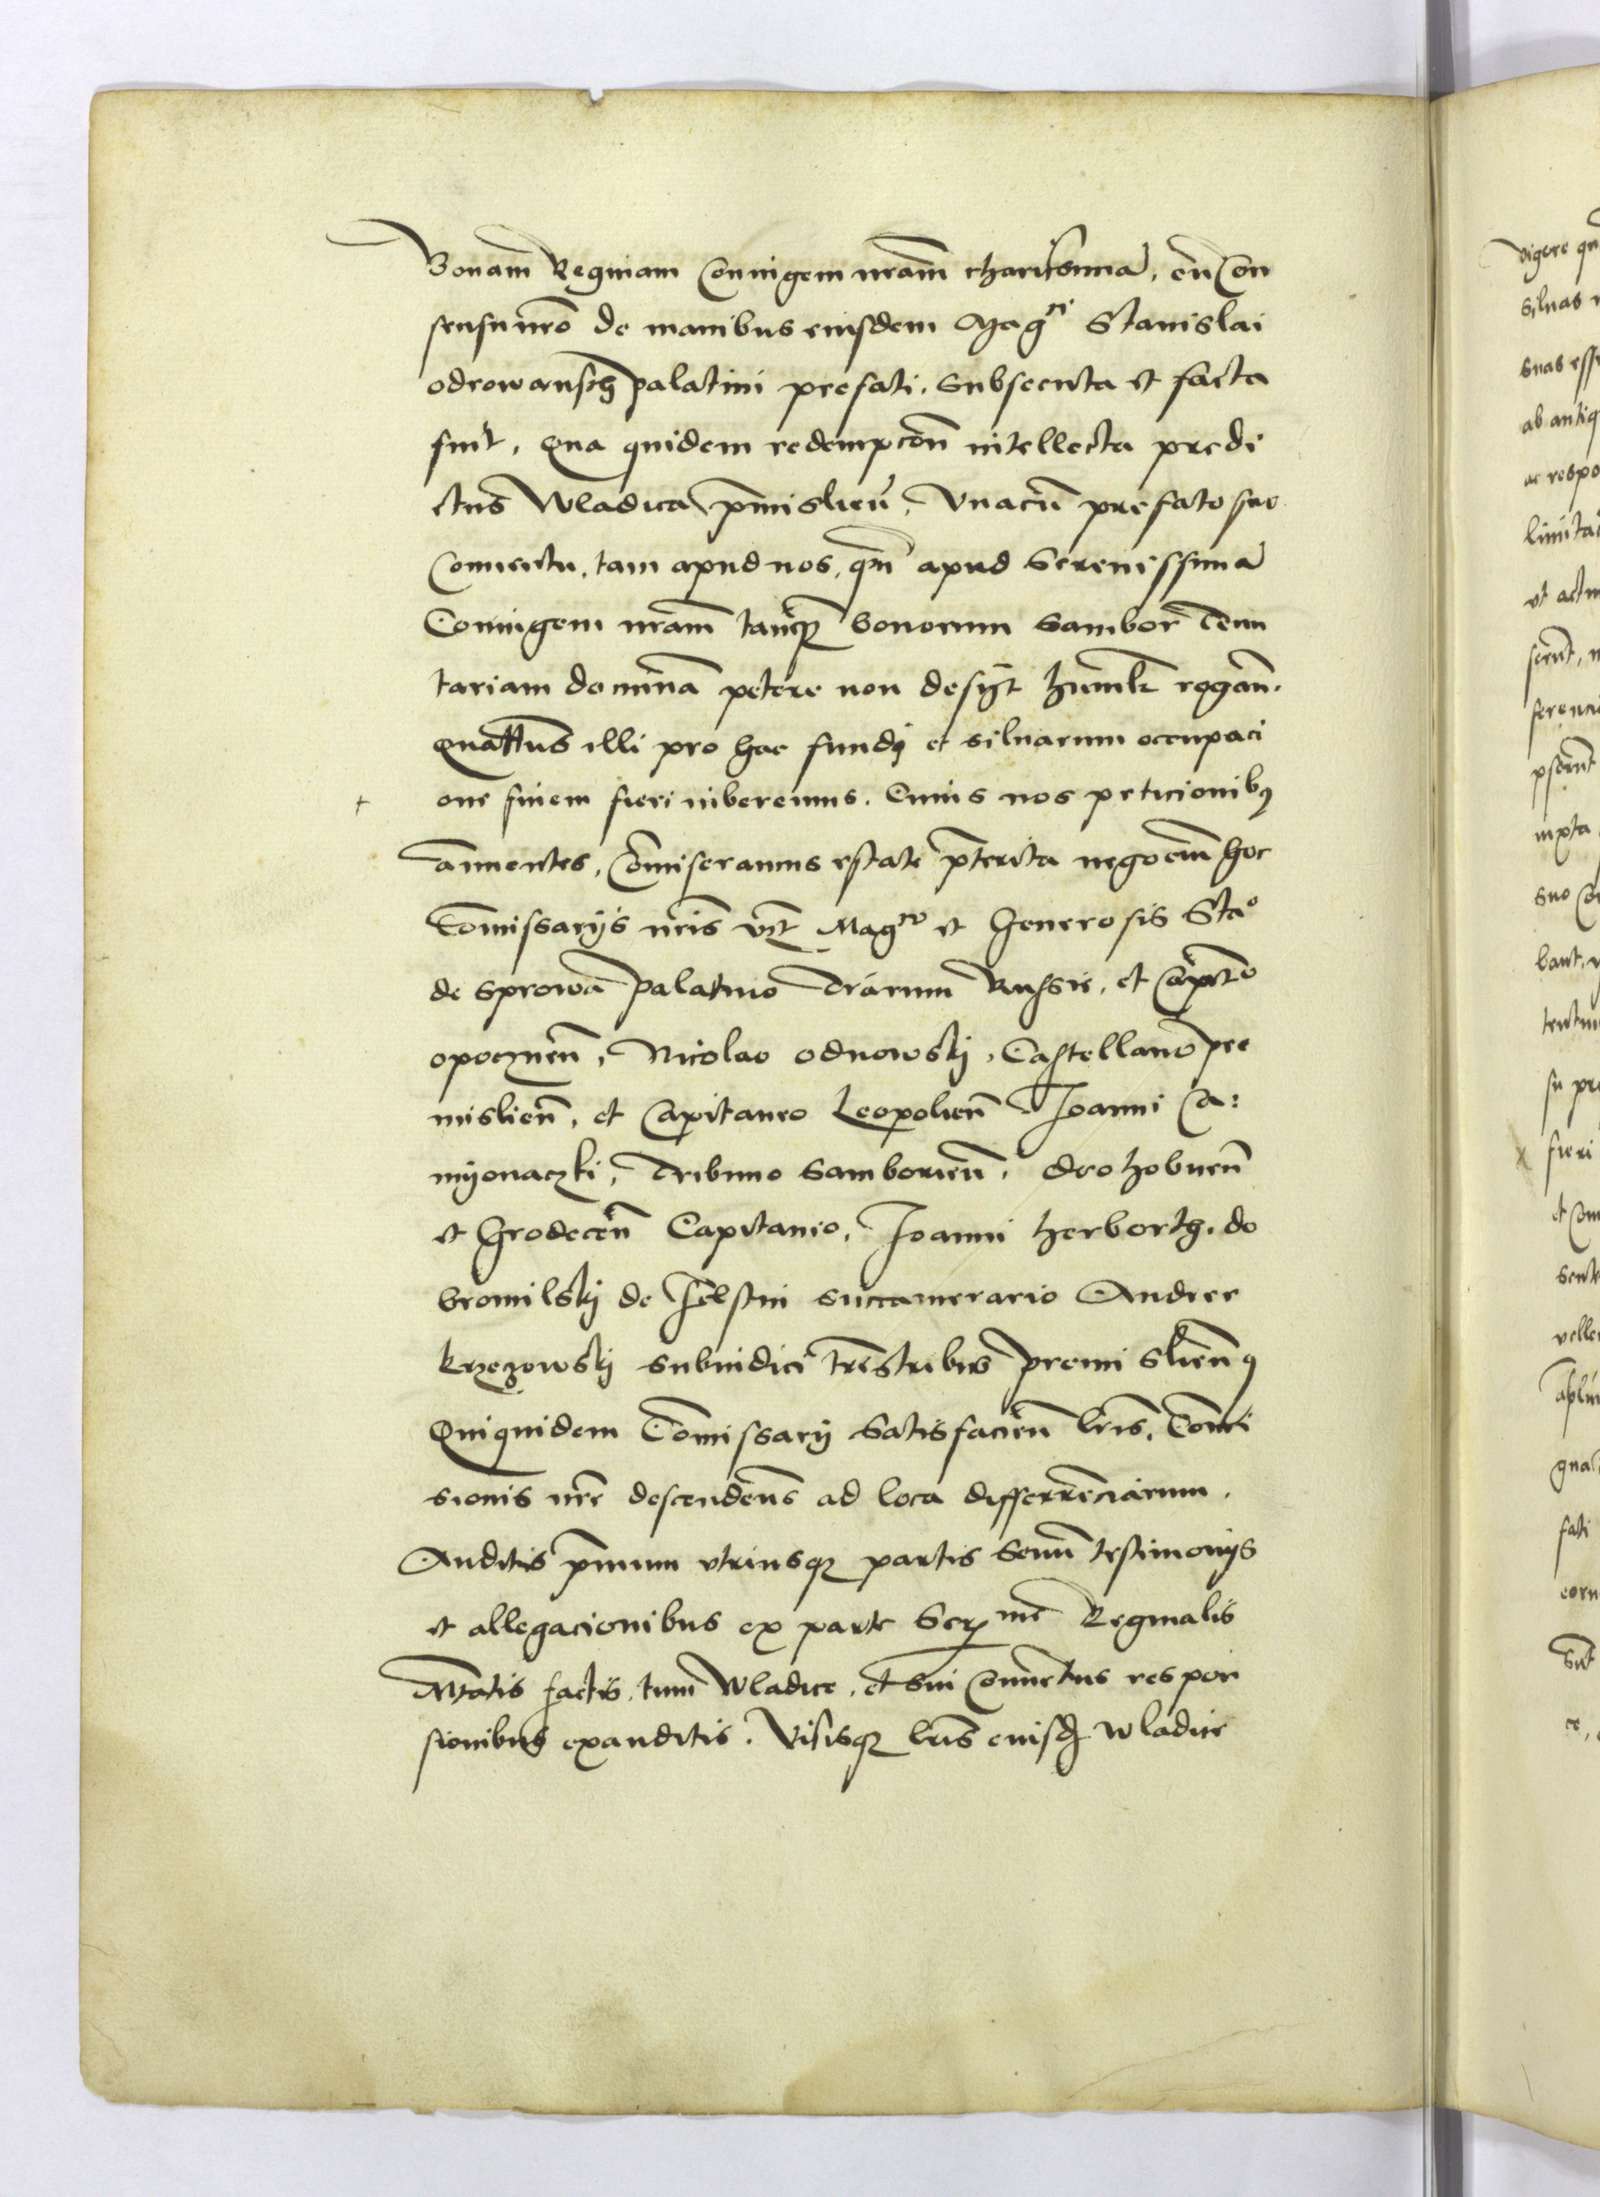 Bonam Reginam Coniugem nram charissimā, cū Con
sensu nrō de manibus eiusdem Magci Stanislai
odrowansch palatini prefati. Subsecuta et facta
sint, Qua quidem redempcōn intellecta predi
ctus Wladica pmislień, Vnacū prefato suo
Conuentu, tam apud nos, qm apud Serenissimā
Coniugem nram tanqȝ bonorum Sambor Tenu
tariam dominā petere non desijt humilr rogań.
Quattus illi pro hac fundi et siluarum occupaci
one finem fieri iuberemus. Cuius nos peticionibȝ
annuentes, Cōmiseramus estate pterita negocium hoc
Cōmissarijs nris vcȝ Magco et Generosis Stao
de Sprowa palatino Trarum Russie, et Capitō
opocznen, Nicolao odnowskj, Castellano pre
mislien, et Capitaneo Leopolien Joanni Ca:
myonaczki, Tribuno Samborien, drohobuen
et Grodecen Capitanio, Joanni herborth, do
bromilskj de Felstin succamerario Andree
krzezowskj Subiudici Trestribus premislien
Quiquidem Cōmissarij Satisfacien lris Cōmi
sionis nre descendens ad loca differrenciarum.
Auditis pmum vtriusqȝ partis Senū testimonijs
et allegacionibus ex parte Serme Reginalis
Mtatis factis, tum Wladice, et sui Conuctus respon
sionibus exauditis. Visisqȝ lris eiusdȝ Wladice